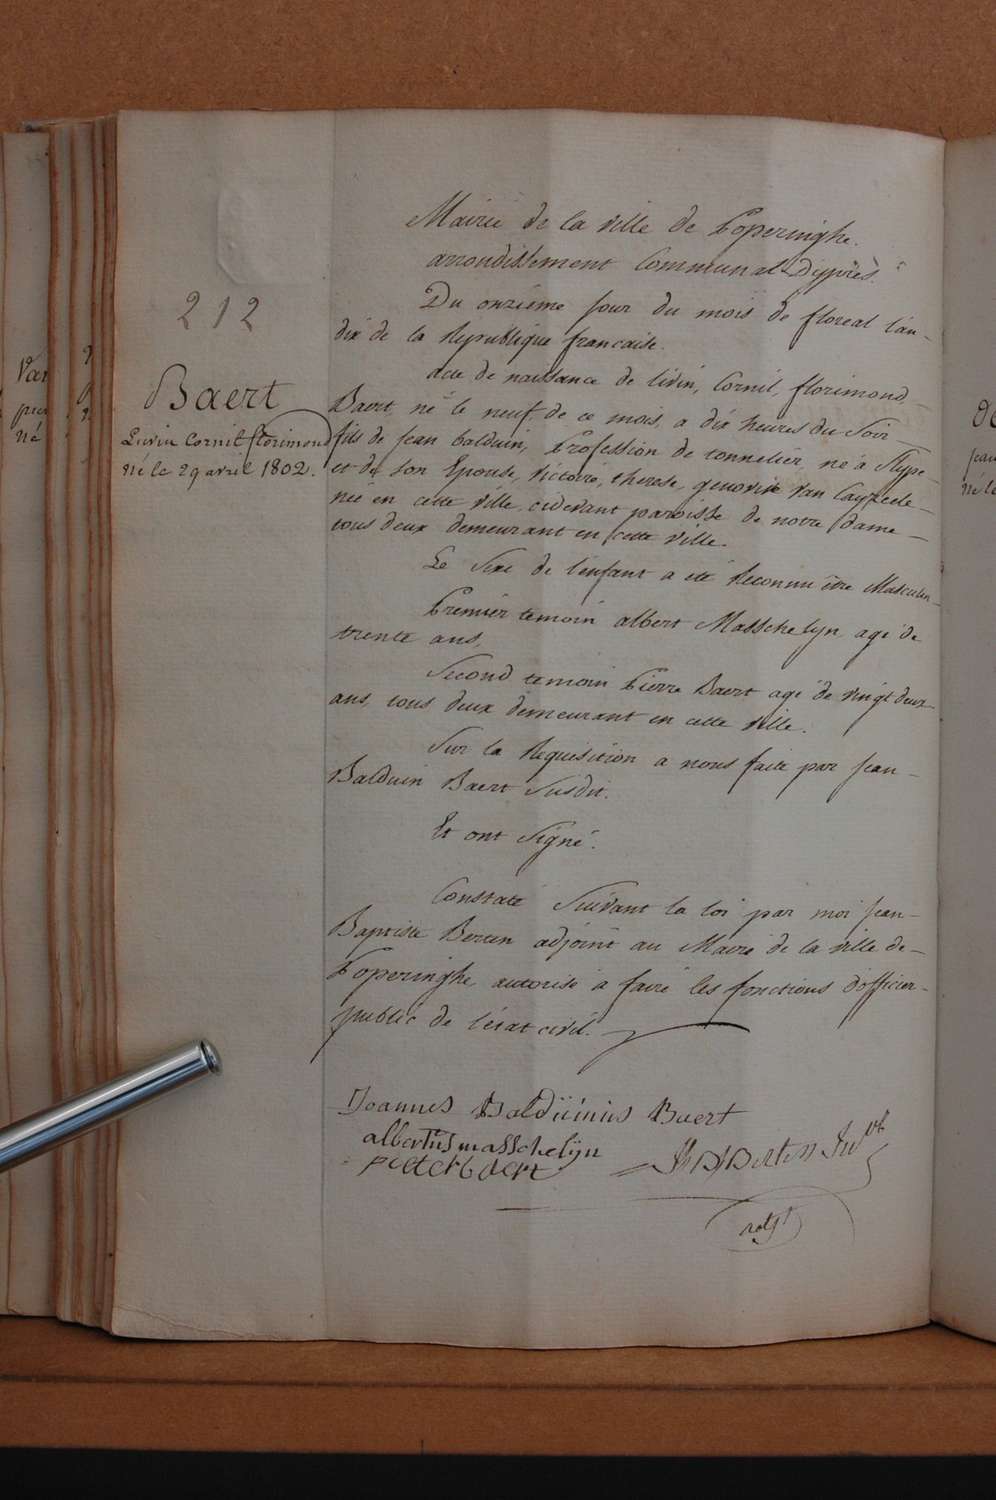 Mairie de la ville de Poperinghe.
arrondissement Communal d'yprès.
212
Du onzieme jour du mois de floreal l'an-
dix de la Republique francaise.
Baert
Livin Cornil florimond
né le 29 avril 1802.
Acte de naissance de livin, Cornil, florimond,
Baert, né le neuf de ce mois, a dix heures du Soir
fils de jean balduin, Profession de tonnelier, né à Stype
et de son Epouse, victoire, therese, genovive van Cayzeele
née en cette ville, cidevant paroisse de notre dame
tous deux demeurant en cette ville.
Le Sexe de l'enfant a eté Reconnu être Masculin
Premier temoin albert Masschelyn agé de
trente ans,
Second temoin Pierre Baert agé de vingt deux
ans, tous deux demeurant en cette ville.
Sur la Requisition a nous faite par jean-
Balduin Baert Susdit.
Et ont Signé.
Constaté Suivant la loi par moi jean-
Baptiste Berten adjoint au Maire de la ville de-
Poperinghe, autorisé a faire les fonctions d'officier-
public de l'etat civil.
Joannes Balduinus Baert
albertus masschelijn
pieter baert
Van
né
né le